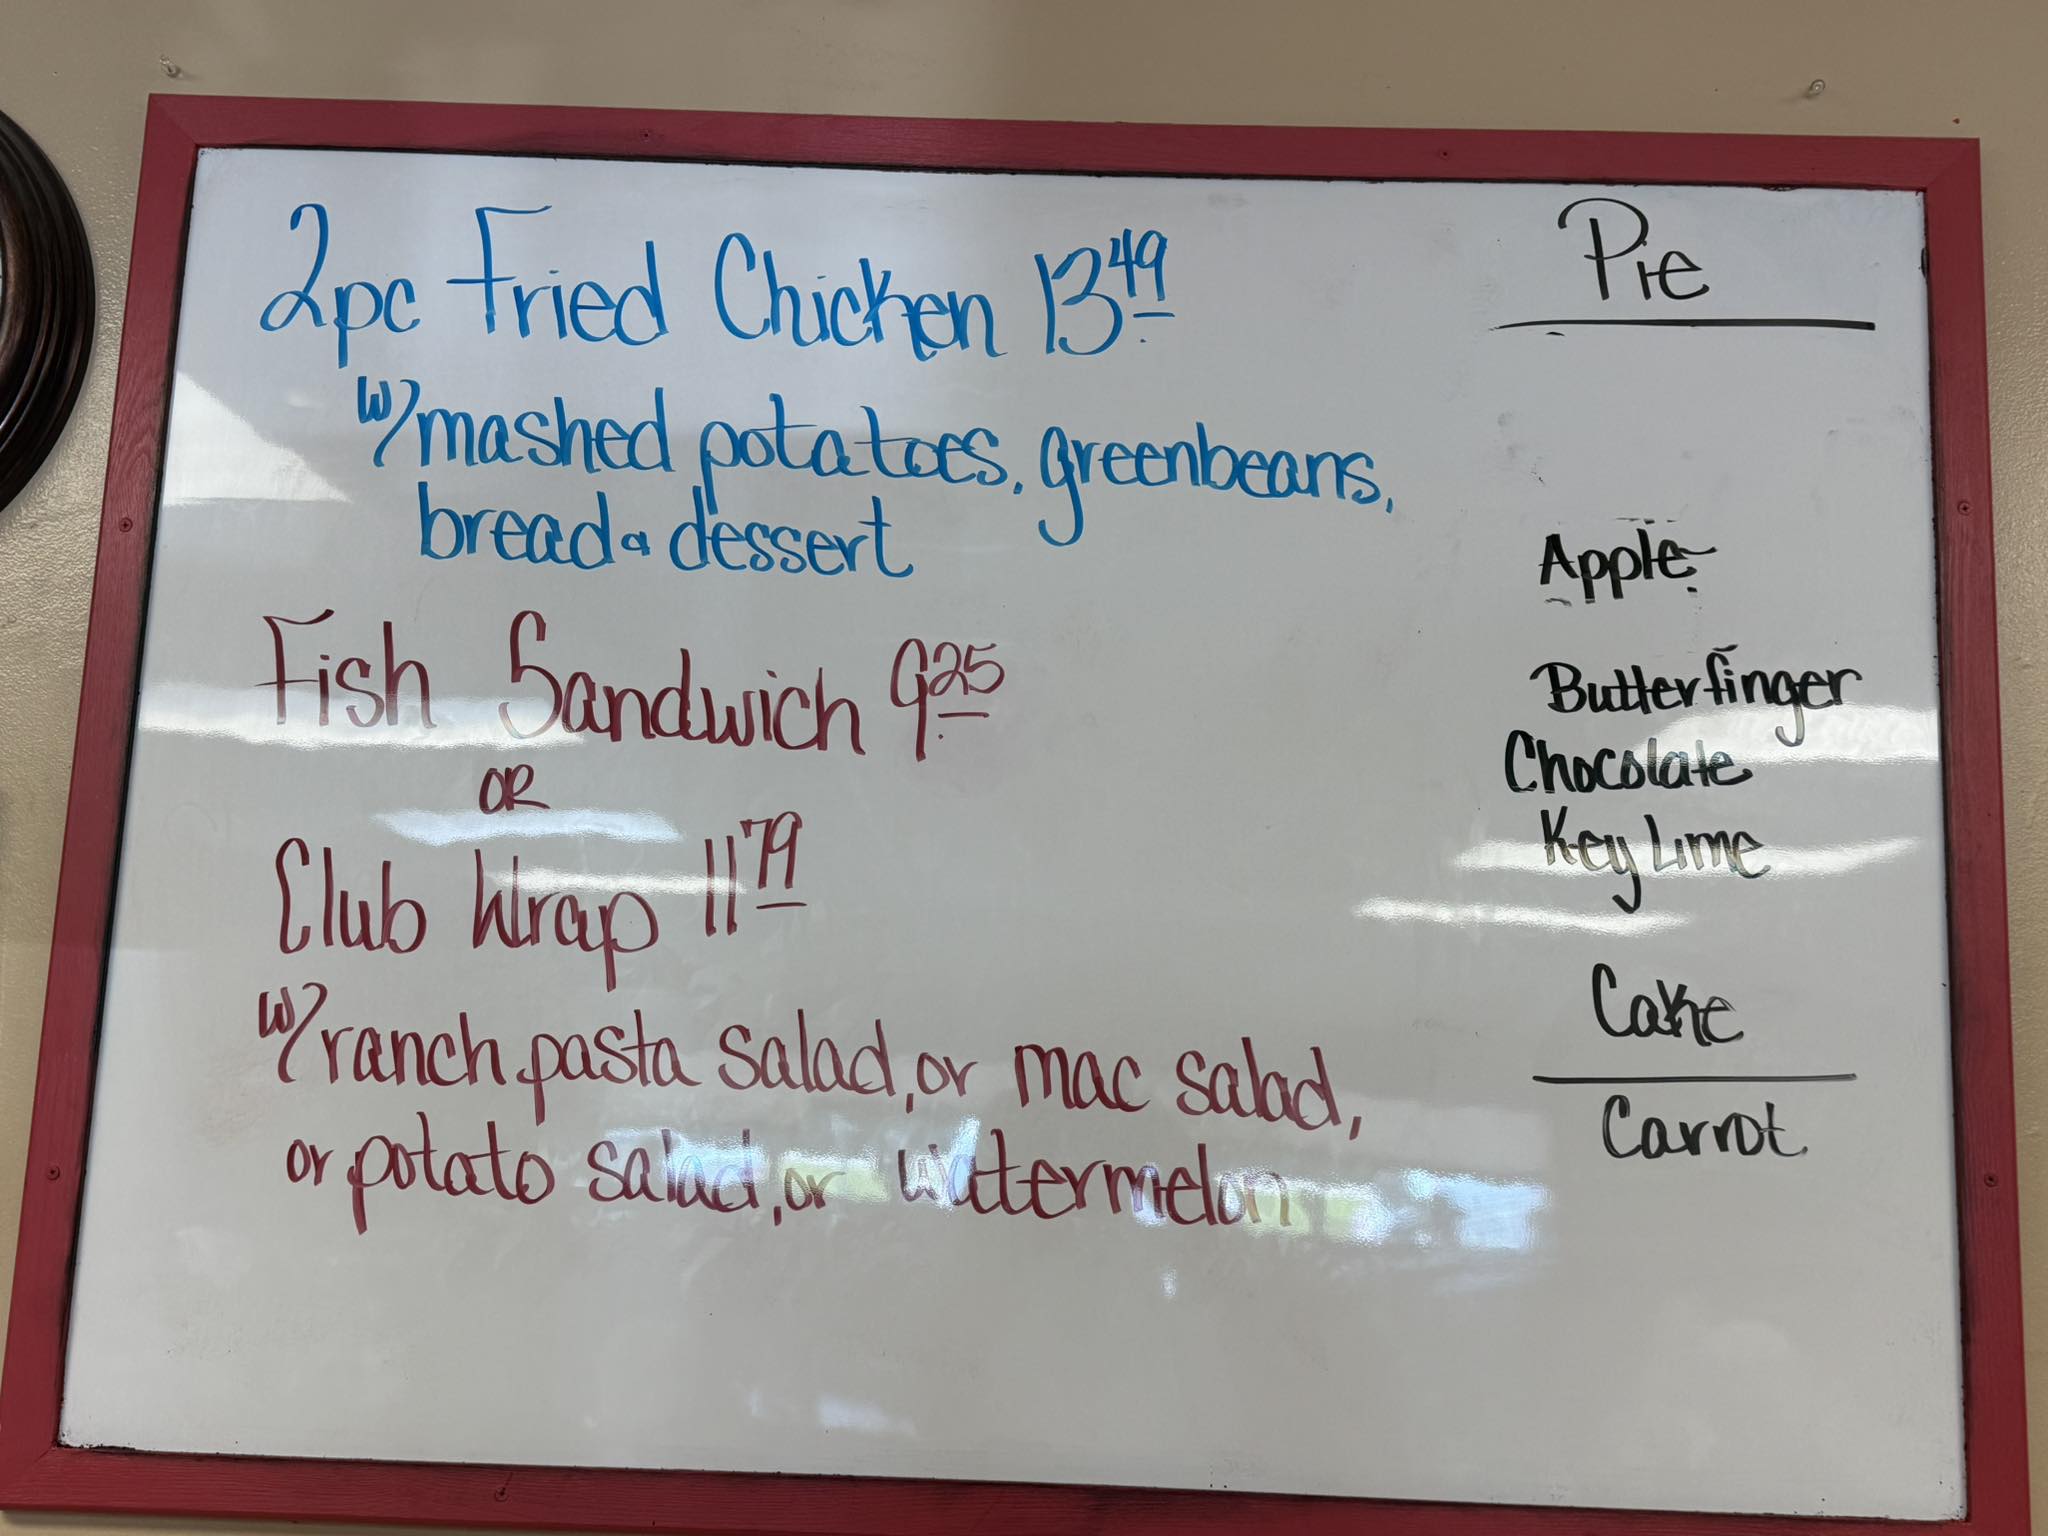 2pc Fried Chicken 13 49
w/ mashed potatoes, greenbeans,
bread & dessert
Fish Sandwich 9 25
OR
Club Wrap 11 79
w/ ranch pasta salad, or mac salad,
or potato salad, or watermelon
Pie
Apple
Butterfinger
Chocolate
Key Lime
Cake
Carrot